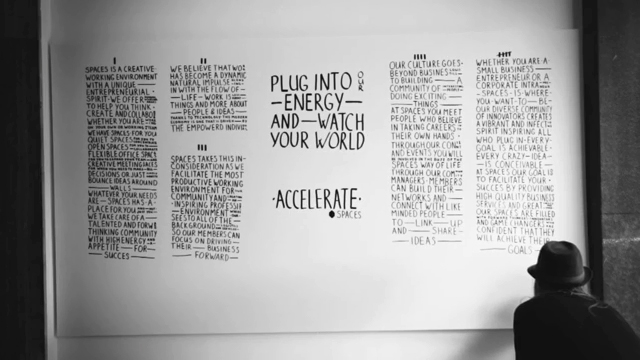 I
SPACES IS A CREATIVE
WORKING ENVIRONMENT
WITH A UNIQUE
ENTREPRENEURIAL
SPIRIT · WE OFFER
TO HELP YOU THINK ·
CREATE AND COLLABO
WHETHER YOU ARE
WE HAVE SPACES FOR YOU
QUIET SPACES
OPEN SPACES
FLEXIBLE OFFICE SPACE
CREATIVE MEETING SPACES
DECISIONS OR JUST
BOUNCE IDEAS AROUND
WALLS
WHATEVER YOUR NEEDS
ARE — SPACES HAS A
PLACE FOR YOU
WE TAKE CARE OF A
TALENTED AND FORW
THINKING COMMUNITY
WITH HIGH ENERGY
APPETITE — FOR —
SUCCES
II
WE BELIEVE THAT WO
HAS BECOME A DYNAMIC
NATURAL IMPULSE
IN WITH THE FLOW OF —
— LIFE — WORK IS
THINGS AND MORE ABOUT
PEOPLE & IDEAS
THE EMPOWERED INDIVI
III
SPACES TAKES THIS IN-
CONSIDERATION AS WE
FACILITATE THE MOST
PRODUCTIVE WORKING
ENVIRONMENT FOR
COMMUNITY AND
INSPIRING PROFESSI
ENVIRONMENT
SEES TO ALL OF THE
BACKGROUND
SO OUR MEMBERS CAN
FOCUS ON DRIVING
THEIR — BUSINESS
FORWARD —
PLUG INTO OUR
— ENERGY —
AND — WATCH
YOUR WORLD
· ACCELERATE ·
SPACES
IIII
OUR CULTURE GOES
BEYOND BUSINES
TO BUILDING — A
COMMUNITY OF
DOING EXCITING —
— THINGS —
AT SPACES YOU MEET
PEOPLE WHO BELIEVE
IN TAKING CAREERS
THEIR OWN HANDS ·
THROUGH OUR CON
AND EVENTS YOU WILL
SPACES WAY OF LIFE
THROUGH OUR COM
MANAGERS · MEMBERS
CAN BUILD THEIR
NETWORKS AND
CONNECT WITH LIKE
MINDED PEOPLE
TO — LINK — UP
AND — SHARE —
IDEAS —
WHETHER YOU ARE A
SMALL BUSINESS
ENTREPRENEUR OR A
CORPORATE INTRA
SPACES · IS · WHERE
YOU · WANT · TO — BE
OUR DIVERSE COMMUNITY
OF INNOVATORS CREATES
A VIBRANT AND INFECT
SPIRIT INSPIRING ALL
WHO PLUG · IN · EVERY
GOAL IS ACHIEVABLE
EVERY CRAZY — IDEA —
— IS — ACHIEVABLE —
AT SPACES OUR GOAL IS
TO FACILITATE YOUR
SUCCES BY PROVIDING
HIGH QUALITY BUSINESS
SERVICE AND GREAT
OUR SPACES ARE FILLED
AND GAME CHANGERS
CONFIDENT THAT THEY
WILL ACHIEVE THEIR
GOALS